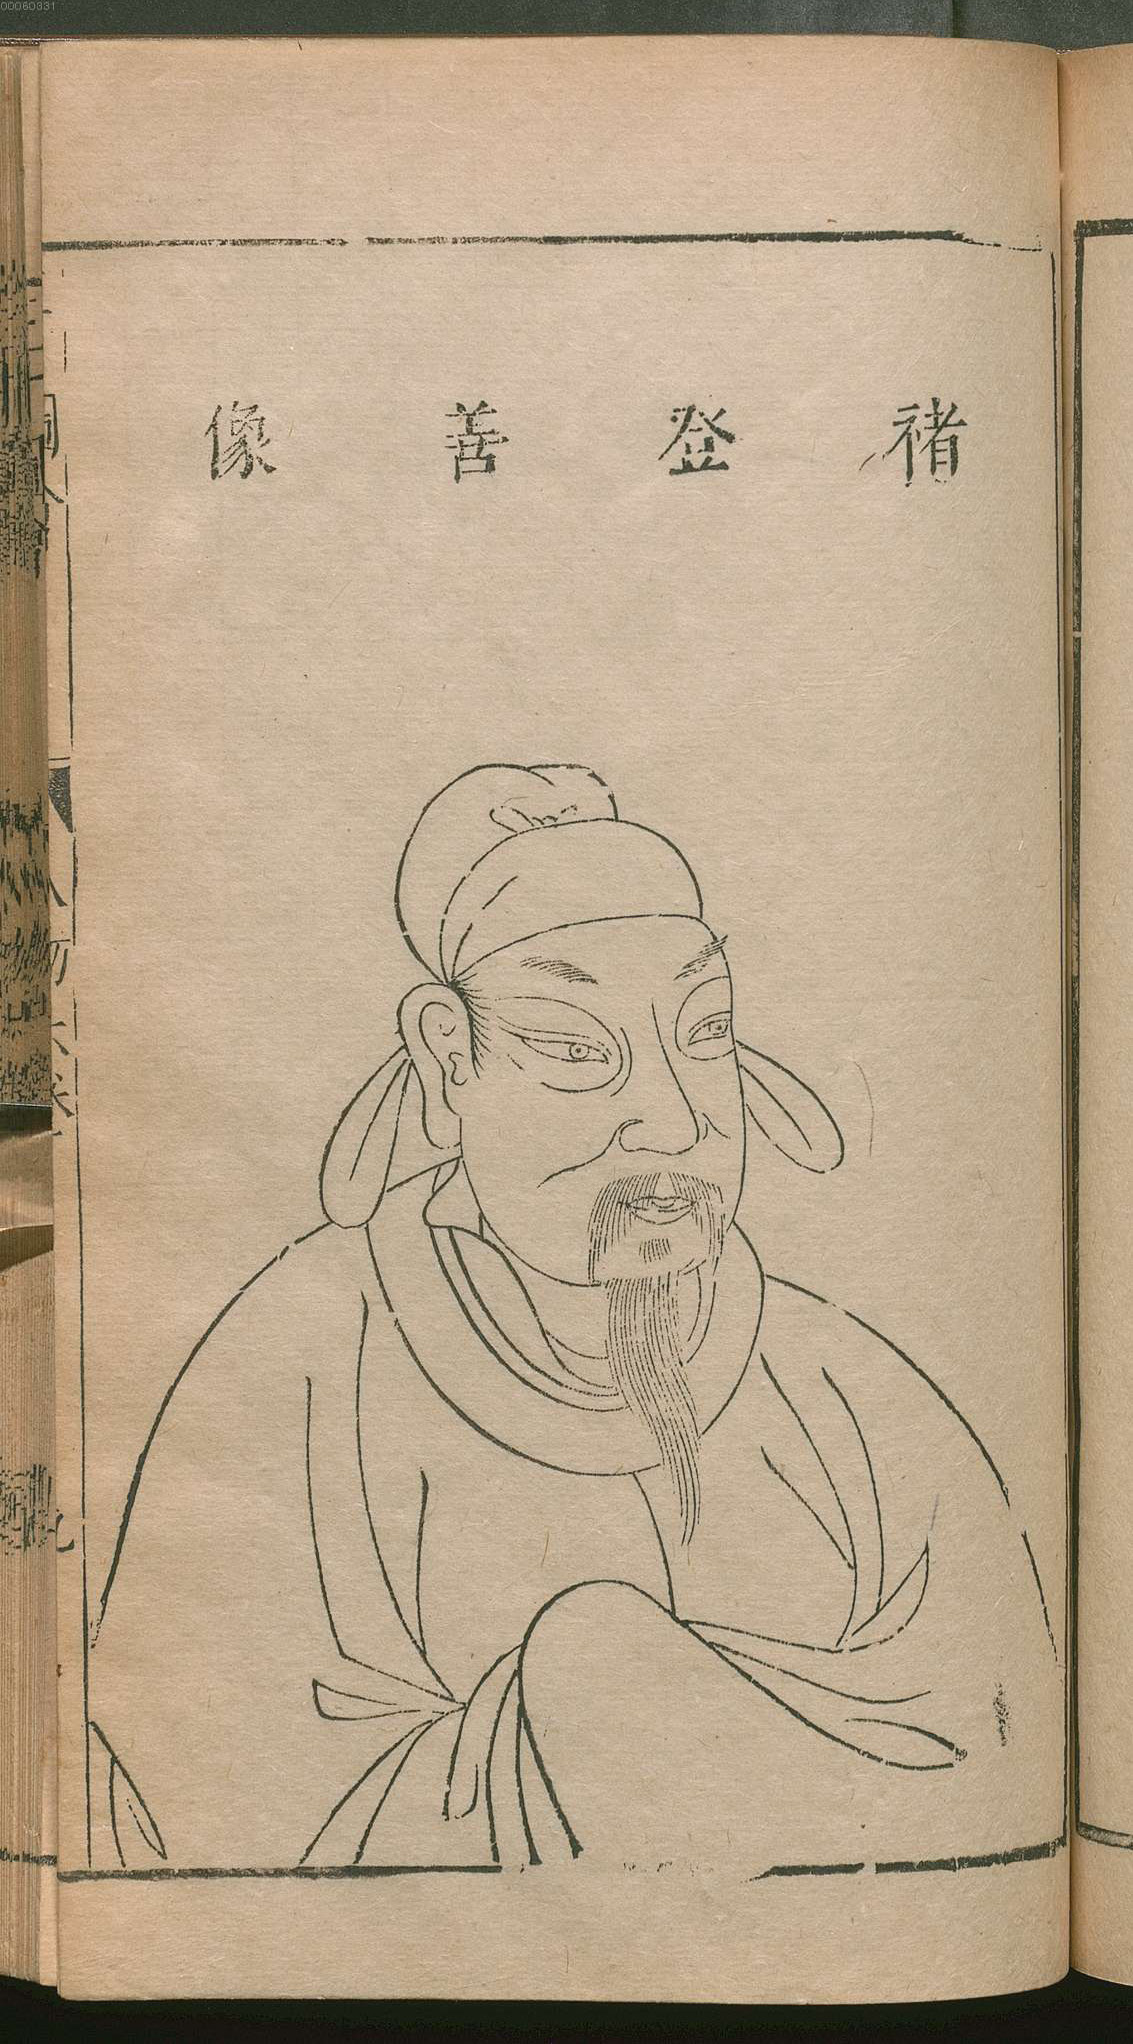 00060331
褚登善像